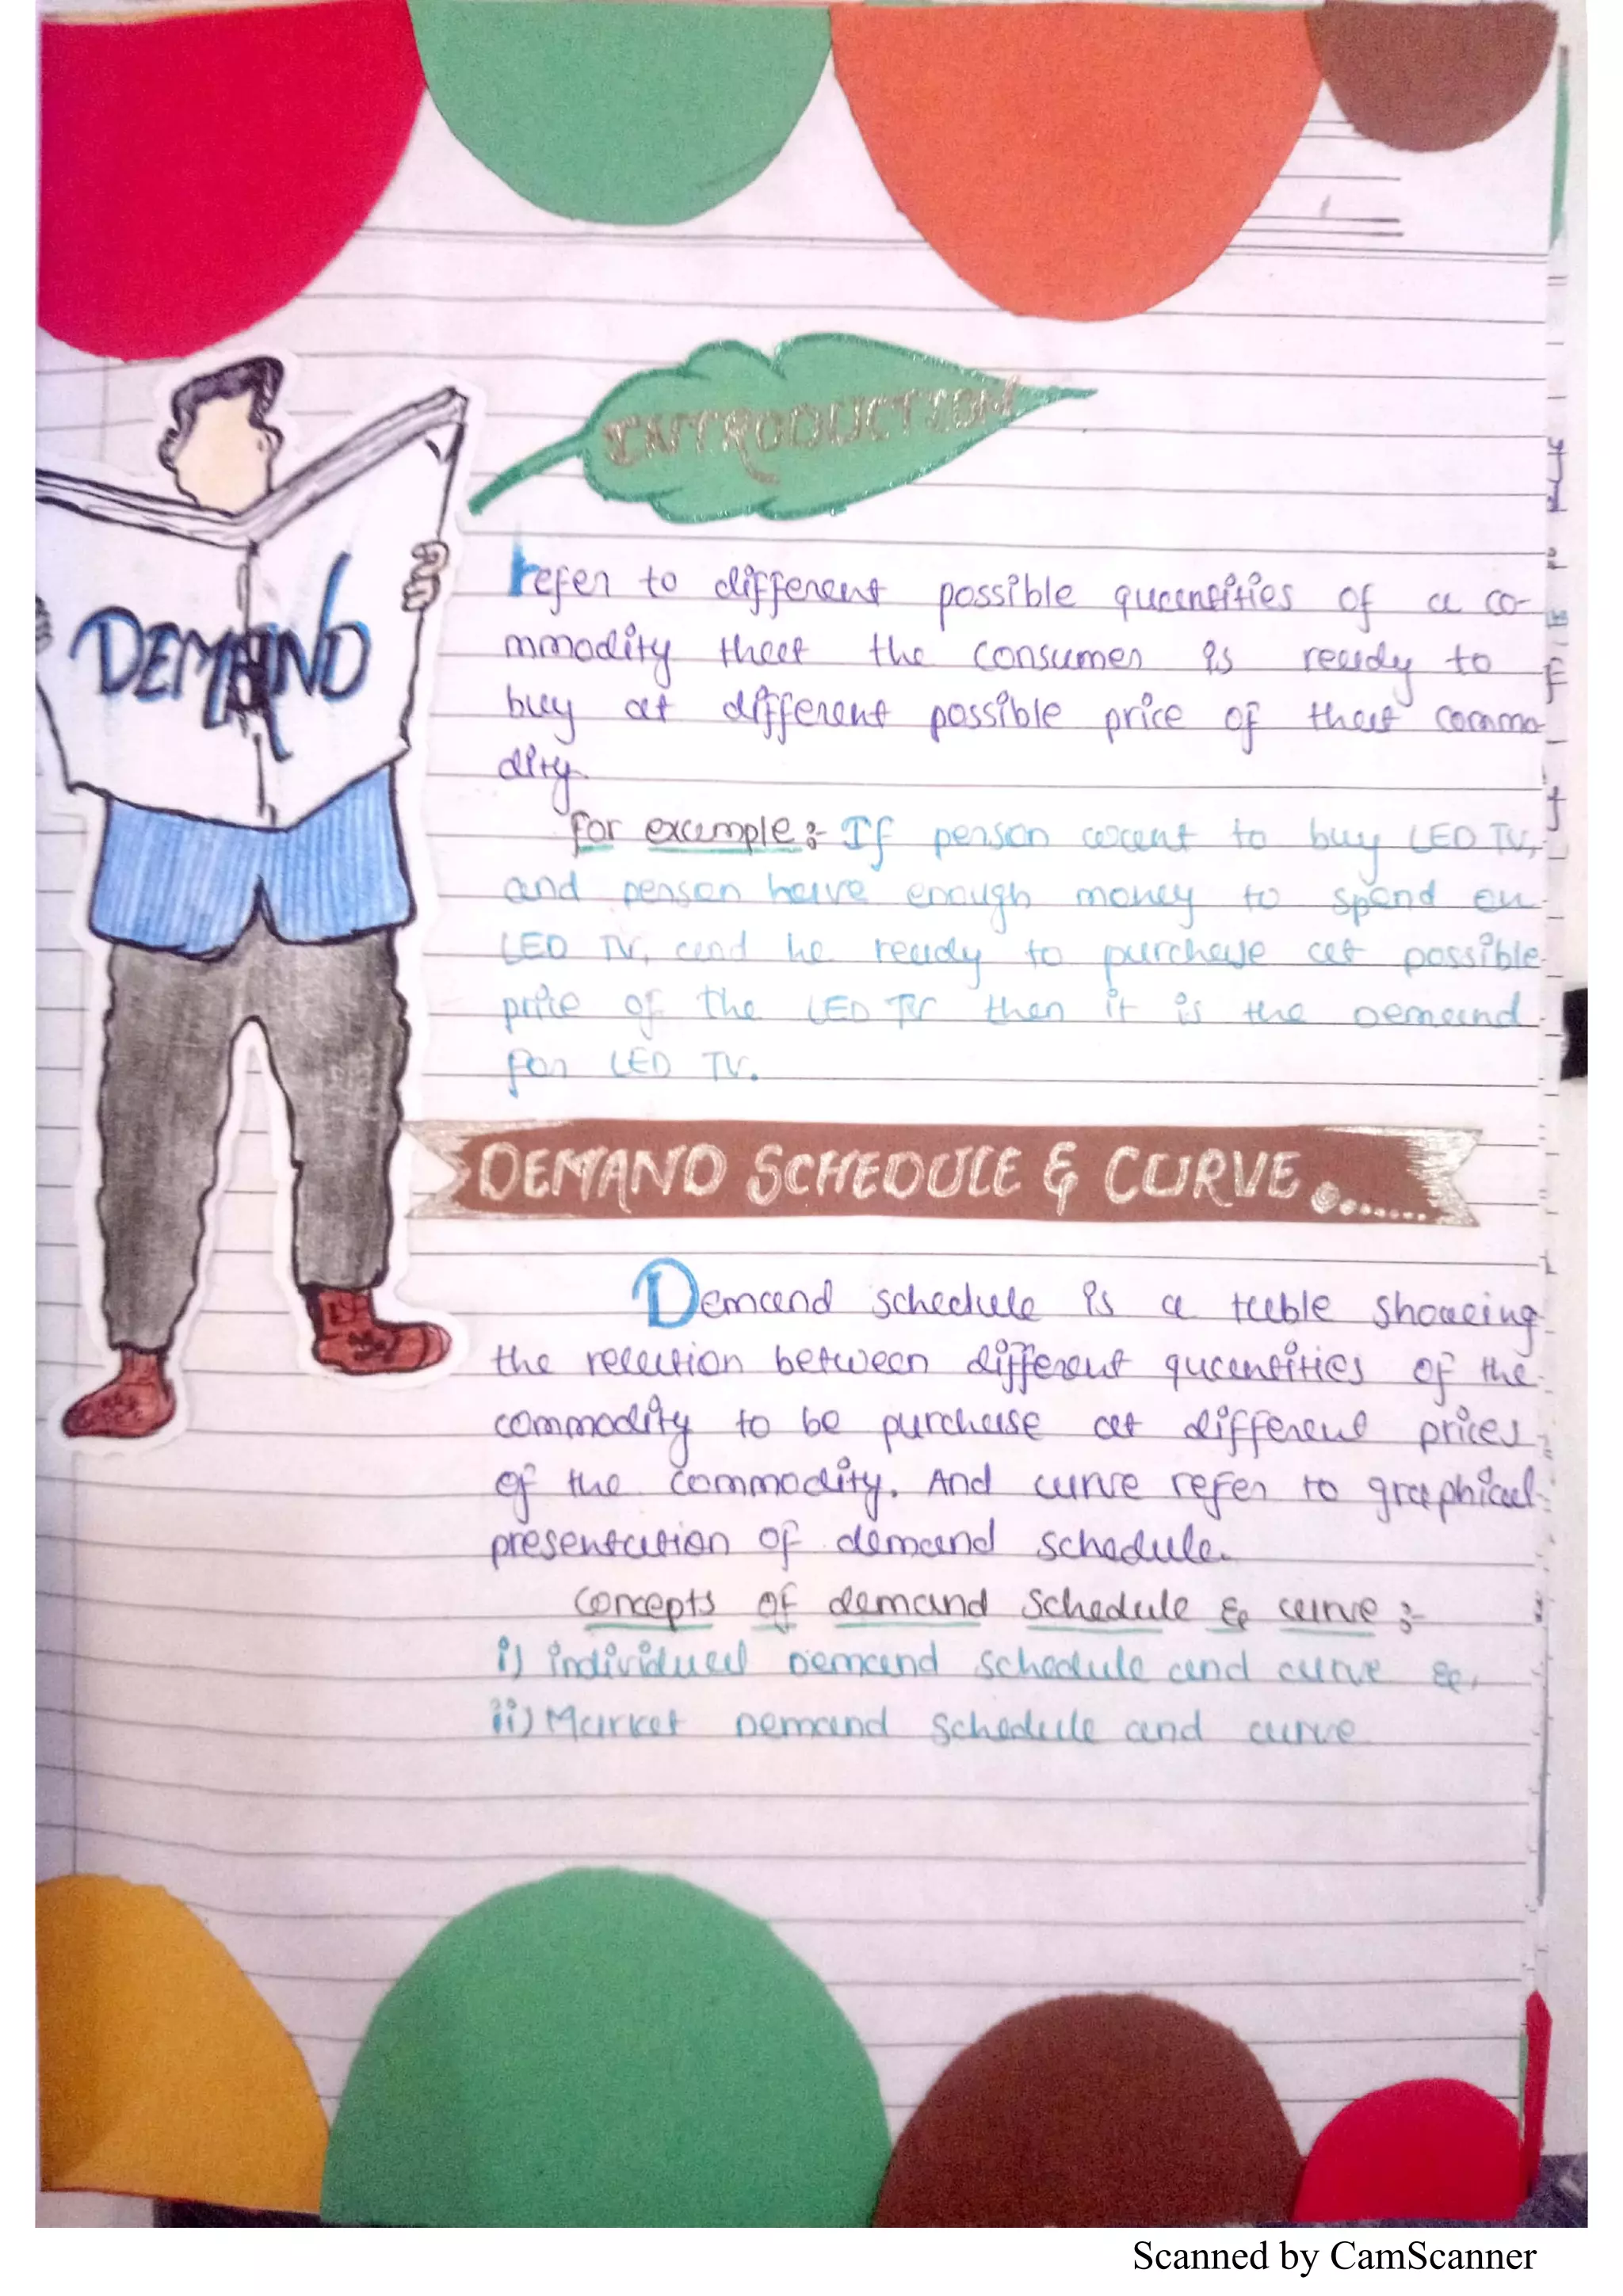 INTRODUCTION
DEMAND
refer to different possible quantities of a co-
mmodity that the consumer is ready to
buy at different possible price of that commo
dity.
For example :- If person want to buy LED TV,
and person have enough money to spend on
LED TV, and he ready to purchase at possible
price of the LED TV then it is the Demand
for LED TV.
DEMAND SCHEDULE & CURVE.......
Demand schedule is a table showing
the relation between different quantities of the
commodity to be purchase at different prices
of the commodity. And curve refer to graphical
presentation of demand schedule.
Concepts of demand schedule & curve :-
i) individual Demand schedule and curve &
ii) Market Demand schedule and curve
Scanned by CamScanner